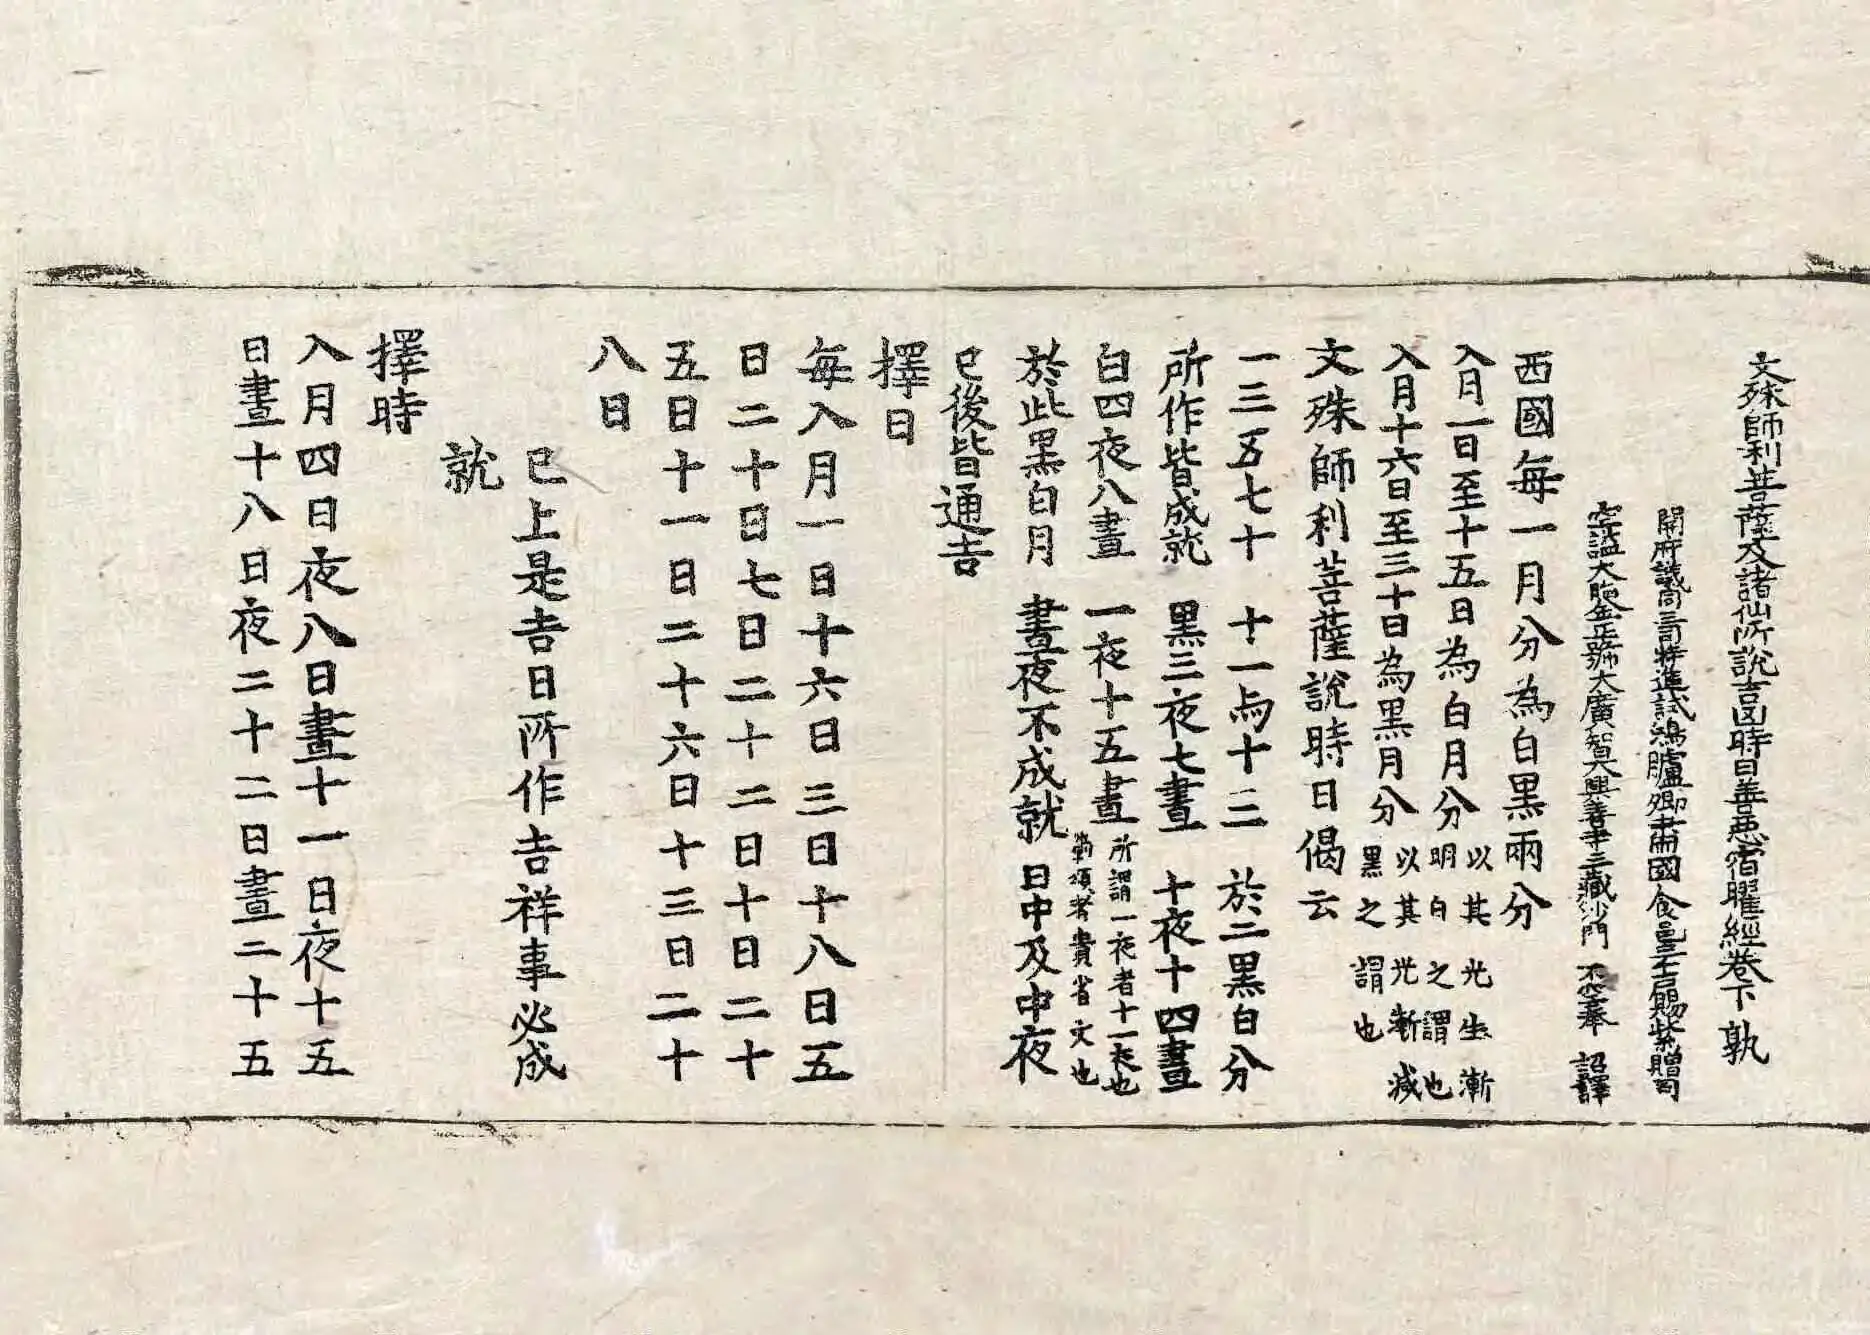 文殊師利菩薩及諸仙所說吉凶時日善惡宿曜經卷下 孰
開府儀同三司特進試鴻臚卿肅國食邑三千戶賜紫贈司
空謚大鑒正號大廣智大興善寺三藏沙門 不空奉 詔譯
西國每一月分為白黑兩分
入月一日至十五日為白月分 以其光生漸
明白之謂也
入月十六日至三十日為黑月分 以其光漸減
黑之謂也
文殊師利菩薩說時日偈云
一三五七十 十一与十三 於二黑白分
所作皆成就 黑三夜七晝 十夜十四晝
白四夜八晝 一夜十五晝 所謂一夜者十一夜也
頌者貴省文也
於此黑白月 晝夜不成就 日中及中夜
已後皆通吉
擇日
每入月一日十六日三日十八日五
日二十日七日二十二日十日二十
五日十一日二十六日十三日二十
八日
已上是吉日所作吉祥事必成
就
擇時
入月四日夜八日晝十一日夜十五
日晝十八日夜二十二日晝二十五